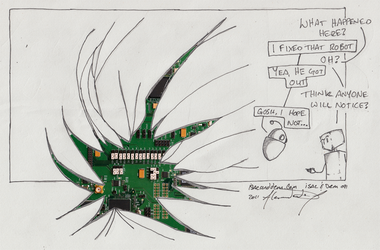 WHAT HAPPENED
HERE?
I FIXED THAT ROBOT
OH?
YEA, HE GOT
OUT
THINK ANYONE
WILL NOTICE?
GOSH, I HOPE
NOT...
2011